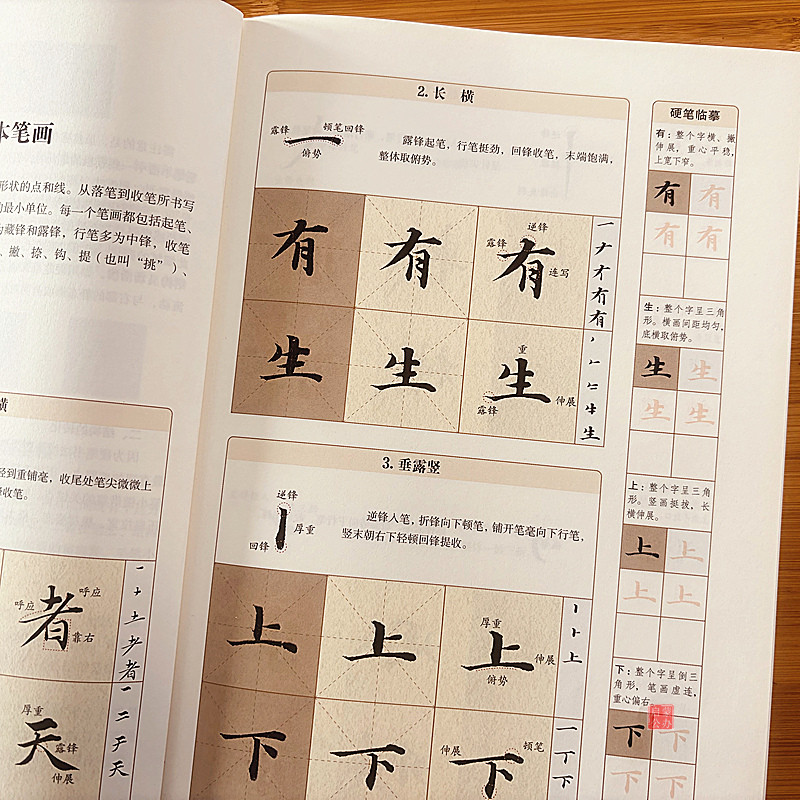 本笔画
形状的点和线。从落笔到收笔所书写
的最小单位。每一个笔画都包括起笔、
为藏锋和露锋，行笔多为中锋，收笔
、撇、捺、钩、提（也叫“挑”）、
横
轻到重铺毫，收尾处笔尖微微上
锋收笔。
呼应
呼应
者
靠右
者
厚重
天
露锋
伸展
二
于
天
2.长 横
露锋
顿笔回锋
俯势
露锋起笔，行笔挺劲、回锋收笔，末端饱满，
整体取俯势。
有
有
有
逆锋
露锋
连写
一
ナ
有
生
生
生
重
露锋
伸展
生
3.垂露竖
逆锋
厚重
回锋
逆锋入笔，折锋向下顿笔，铺开笔毫向下行笔，
竖末朝右下轻顿回锋提收。
上
上
上
厚重
伸展
俯势
上
下
下
下
伸展
顿笔
一
丅
下
硬笔临摹
有：整个字横、撇
伸展，重心平稳，
上宽下窄。
有
有
有
有
生：整个字呈三角
形。横画间距均匀，
底横取俯势。
生
生
生
生
上：整个字呈三角
形。竖画挺拔，长
横伸展。
上
上
上
上
下：整个字呈倒三
角形，笔画虚连，
重心偏右。
下
下
下
下